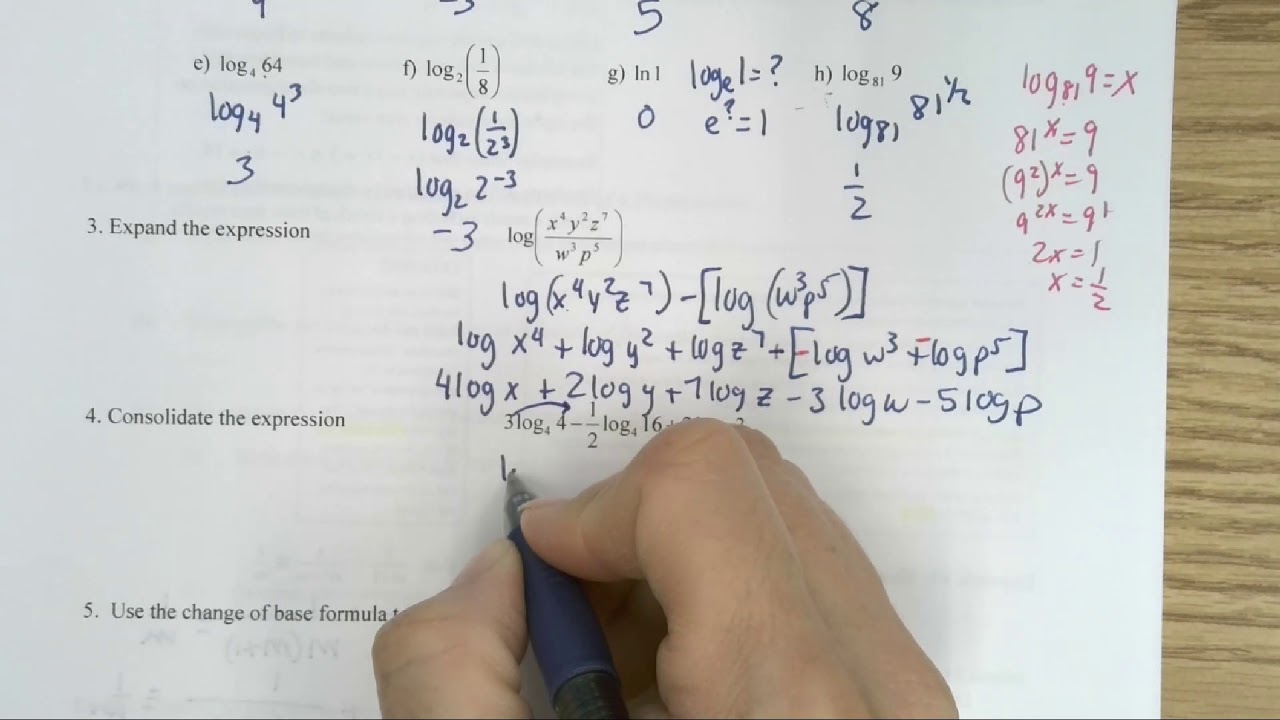 4 -3 5 8
e) log₄ 64 f) log₂(1/8) g) ln 1 logₑ1=? h) log₈₁ 9 log₈₁9=x
log₄ 4³ log₂(1/2³) 0 e^?=1 log₈₁ 81^1/2 81^x=9
3 log₂ 2⁻³ 1/2 (9²)^x=9
3. Expand the expression -3 log(x⁴y²z⁷/w³p⁵) 9^2x=9¹
2x=1
log(x⁴y²z⁷)-[log(w³p⁵)] x=1/2
log x⁴+log y²+log z⁷+[-log w³+-log p⁵]
4log x+2log y+7log z-3log w-5log p
4. Consolidate the expression 3log₄ 4-1/2 log₄ 16+
5. Use the change of base formula